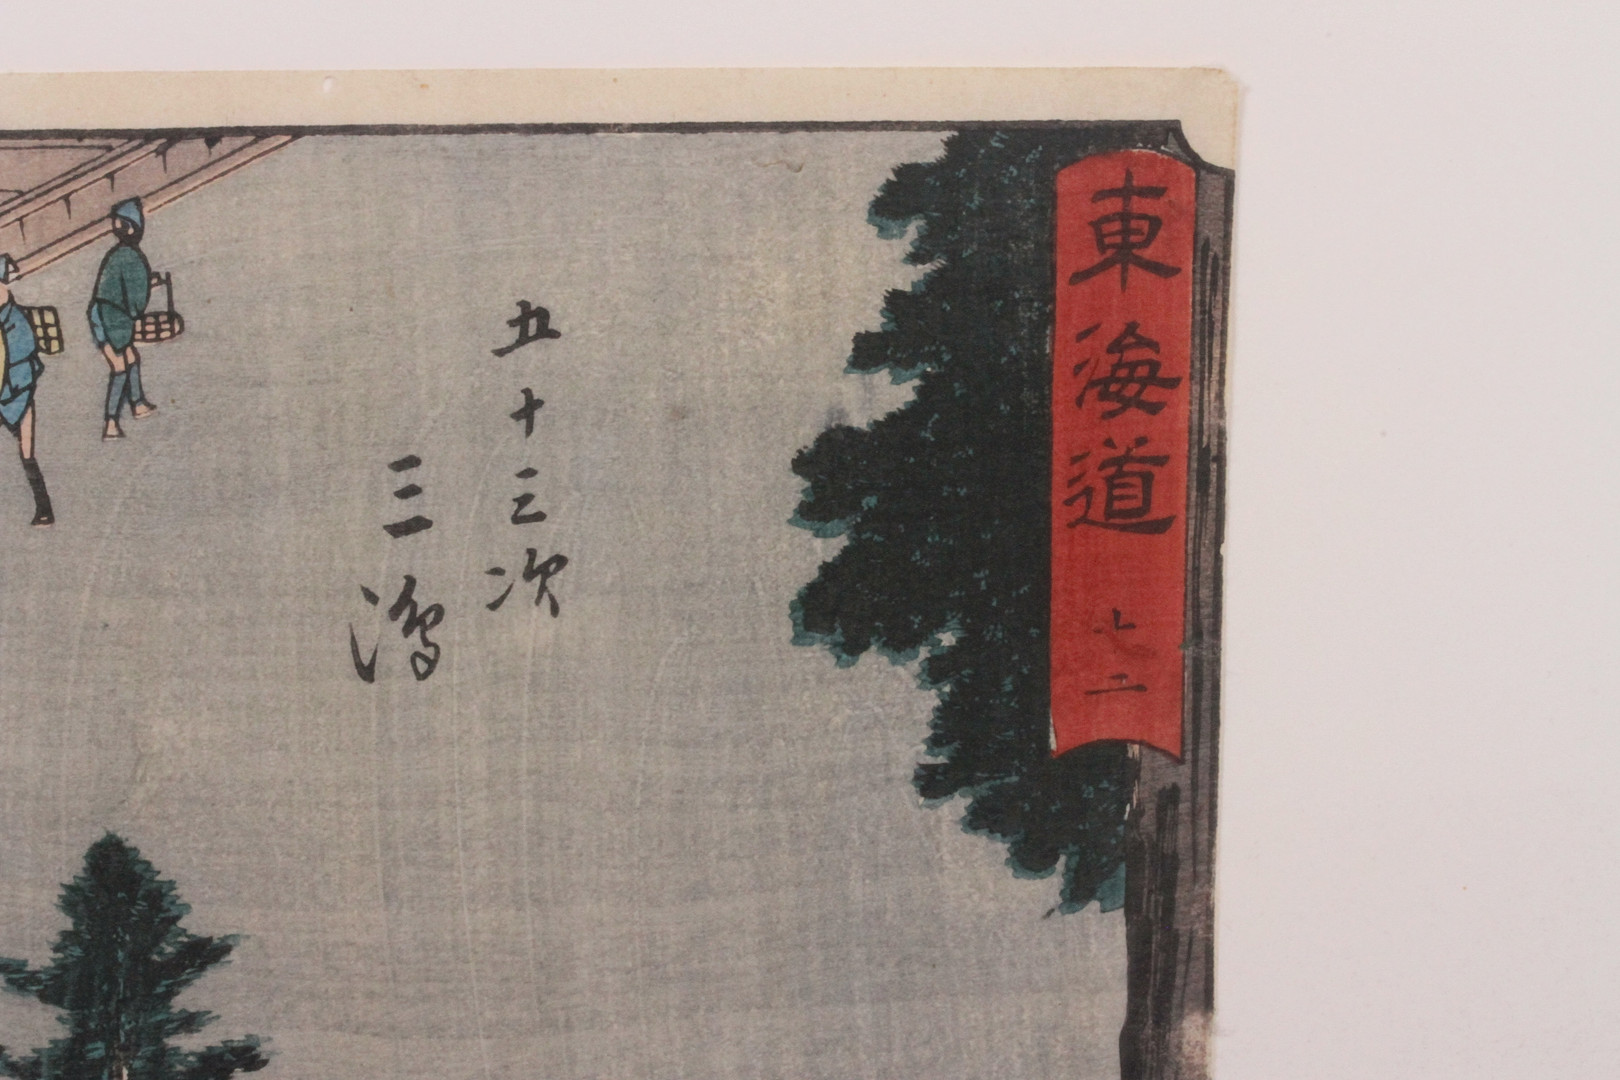 東海道
十二
五十三次
三嶋